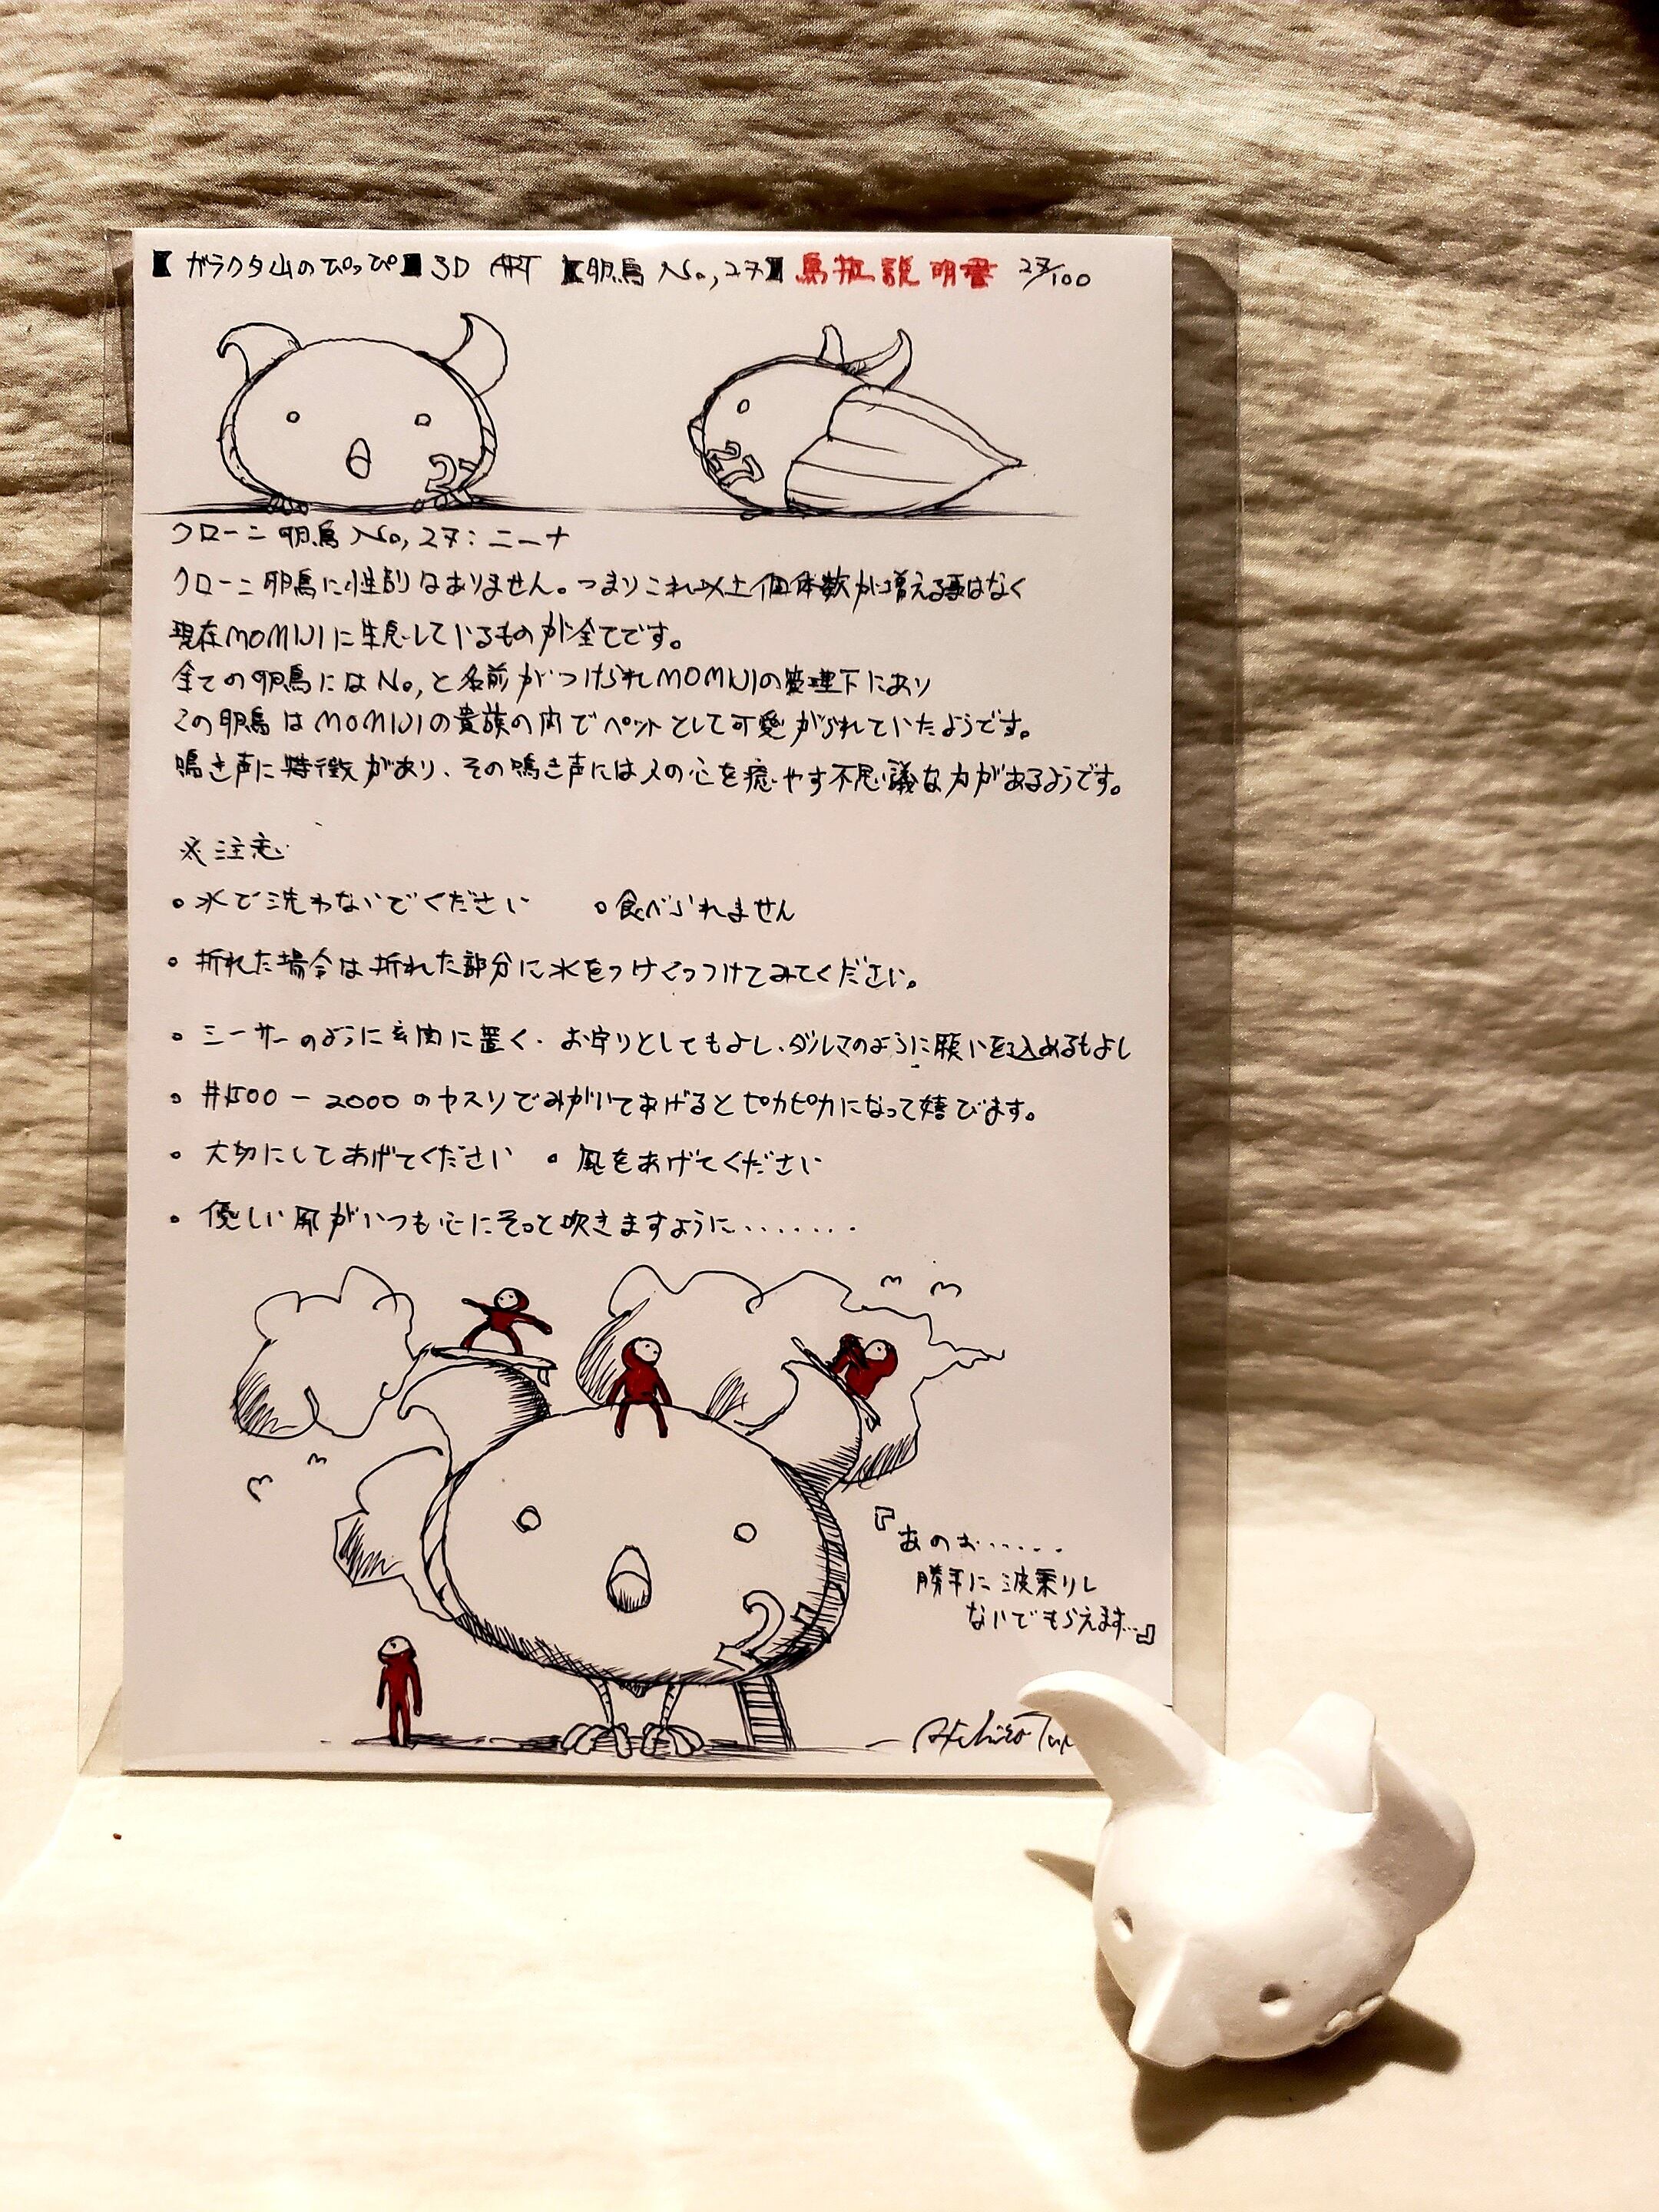 【ガラクタ山のぴっぴ】3D ART 【卵鳥 No,27】鳥扱説明書 27/100
27
27
クローン卵鳥 No,27：ニーナ
クローン卵鳥に性別はありません。つまりこれ以上個体数が増える事はなく
現在MOMIJIに生息しているものが全てです。
全ての卵鳥にはNo,と名前がつけられMOMIJIの管理下にあり
この卵鳥はMOMIJIの貴族の内でペットとして可愛がられていたようです。
鳴き声に特徴があり、その鳴き声には人の心を癒やす不思議な力があるようです。
※注意
・水で洗わないでください ・食べられません
・折れた場合は折れた部分に水をつけくっつけてみてください。
・シーサーのように玄関に置く、お守りとしてもよし、ダルマのように願いを込めるもよし
・#1500-2000のヤスリでみがいてあげるとピカピカになって喜びます。
・大切にしてあげてください ・風をあげてください
・優しい風がいつも心にそっと吹きますように........
『あのお......
勝手に波乗りし
ないでもらえます...』
27
Akihiro